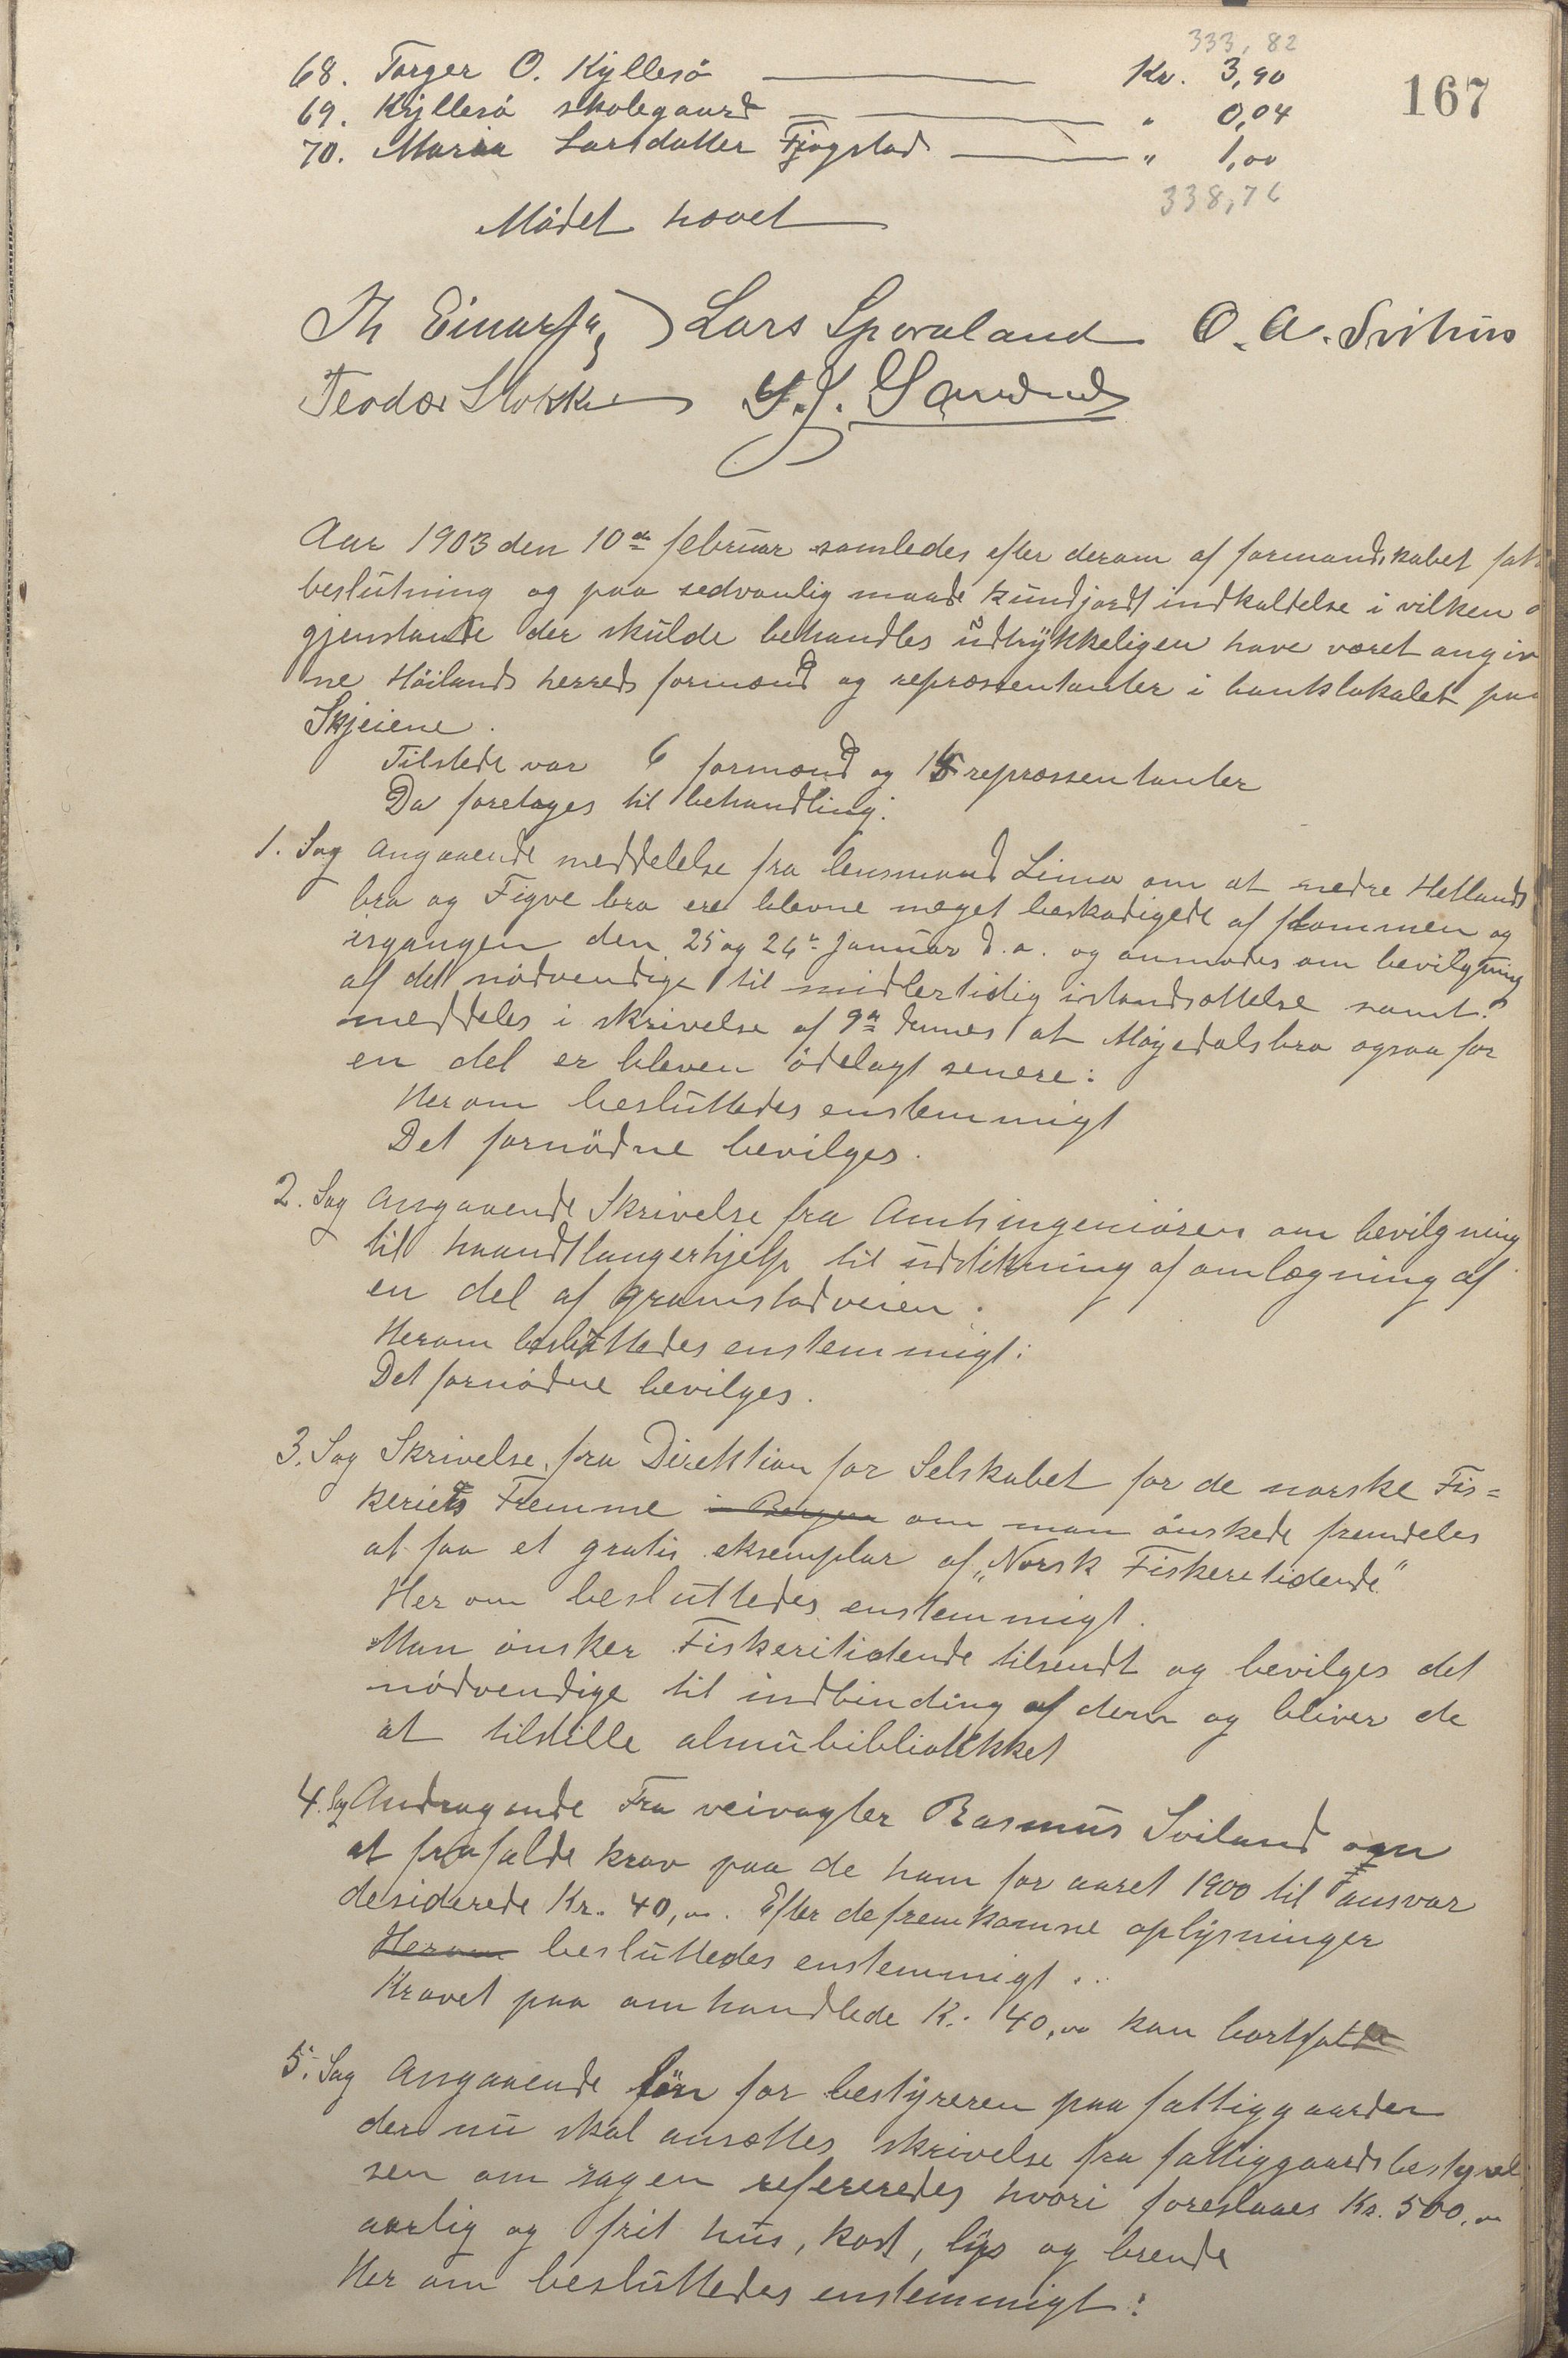 333,82
68. Torger O. Kyllesö Kr. 3,90
167
69. Kyllesö skolegaard " 0,04
70. Maria Larsdatter Fjogstad " 1,00
338,76
Mödet hævet
Th Einarsen Lars Sporaland O. A. Svihus
Teodor Stokke
Aar 1903 den 10de februar samledes efter derom af formandskabet fat
beslutning og paa sedvanlig maade kundgjordt indkaldelse i vilken
gjenstande der skulde behandles udtrykkeligen have været angiv
ne Höilands herreds formænd og repræssentanter i banklokalet paa
Skjeiene.
Tilstede var 6 formænd og repræssentanter
Da foretoges til behandling:
1. Sag Angaaende meddelelse fra lensmand Lima om at nedre Hetlands
bro og Figve bro ere blevne meget beskadigede af flommen og
isgangen den 25 og 26de januar d.a. og anmodes om bevilgning
af det nödvendige til midlertidig istandsættelse samt
meddeles i skrivelse af 9de dennes at Møgedalsbro ogsaa for
en del er bleven ödelagt senere:
Herom besluttedes enstemmigt
Det fornödne bevilges.
2. Sag Angaaende Skrivelse fra Amtsingeniören om bevilgning
til haandtlangerhjelp til udstikning af omlægning af
en del af Gramstadveien.
Herom besluttedes enstemmigt:
Det fornödne bevilges.
3. Sag Skrivelse fra Direktion for Selskabet for de norske Fis=
keriets Fremme i Bergen om man önskede fremdeles
at faa et gratis eksemplar af „Norsk Fiskeretidende"
Her om besluttedes enstemmigt.
Man önsker Fiskeritidende tilsendt og bevilges det
nödvendige til indbinding af dem og bliver de
at tilstille almubibliotekket
4. Sag Andragende Fra veivogter Rasmus Sviland om
at frafalde krav paa de ham for aaret 1900 til ansvar
desiderede Kr. 40,00. Efter de fremkomne oplysninger
Herom besluttedes enstemmigt:
Kravet paa omhandlede Kr. 40,00 kan bortfalde
5. Sag Angaaende lön for bestyreren paa fattiggaarden
der nu skal ansættes skrivelse fra fattiggaardsbestyrel
sen om sagen refereredes hvori foreslaaes Kr. 500,00
aarlig og frit hus, kost, lys og brende
Her om besluttedes enstemmigt: